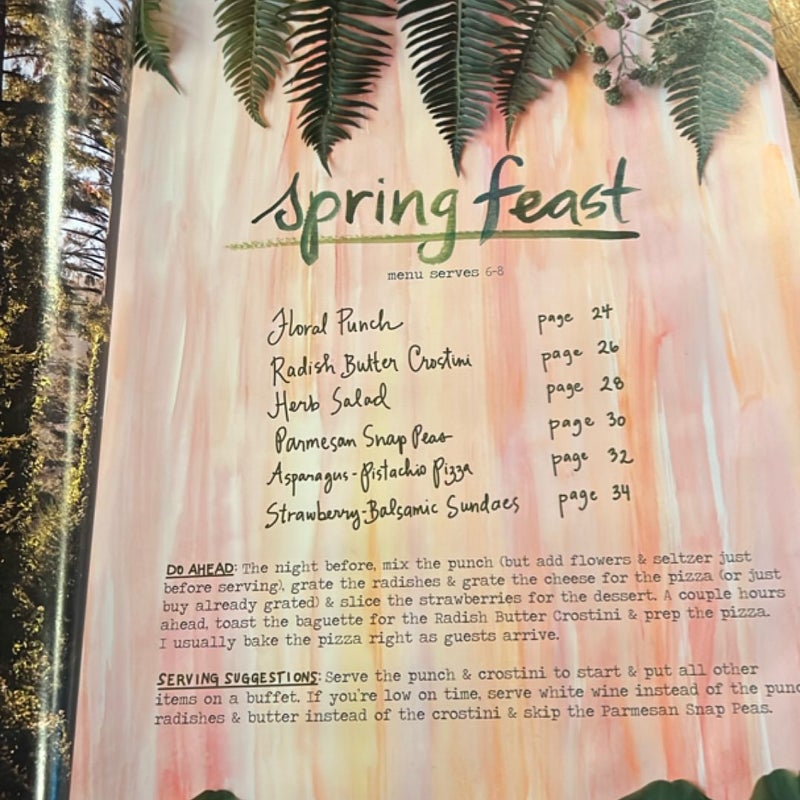 spring feast
menu serves 6-8
Floral Punch page 24
Radish Butter Crostini page 26
Herb Salad page 28
Parmesan Snap Peas page 30
Asparagus-Pistachio Pizza page 32
Strawberry-Balsamic Sundaes page 34
DO AHEAD: The night before, mix the punch (but add flowers & seltzer just
before serving), grate the radishes & grate the cheese for the pizza (or just
buy already grated) & slice the strawberries for the dessert. A couple hours
ahead, toast the baguette for the Radish Butter Crostini & prep the pizza.
I usually bake the pizza right as guests arrive.
SERVING SUGGESTIONS: Serve the punch & crostini to start & put all other
items on a buffet. If you're low on time, serve white wine instead of the punc
radishes & butter instead of the crostini & skip the Parmesan Snap Peas.